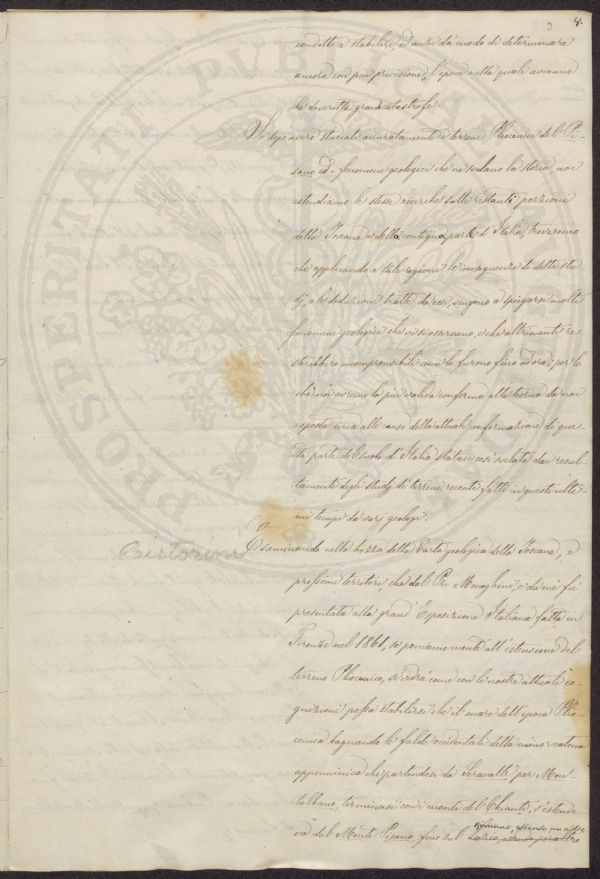 8.
condotto a stabilire, ed anzi dà modo di determinare
ancora con più precisione, l'epoca nella quale avvenne
la descritta gran catastrofe.
Se dopo avere studiati accuratamente i terreni Pliocenici del Pi-
sano ed i fenomeni geologici che ne svelano la storia, noi
estendiamo le stesse ricerche sulle restanti porzioni
della Toscana e della contigua parte d'Italia, troveremo
che applicando a tale regioni le conseguenze di detti stu-
dj, e le deduzioni tratte da essi, vengono a spiegarsi molti
fenomeni geologici che vi si osservano, e che altrimenti re-
sterebbero incomprensibili come lo furono fino ad ora; per lo
chè noi avremo la più valida conferma alla teoria da noi
esposta circa alle cause della attuale conformazione di que-
sta parte del suolo d'Italia stataci così svelata dai resul-
tamenti degli studj di terreni recenti fatti in questi ulti-
mi tempi da varj geologi.
Esaminando nella bozza della Carta geologica della Toscana, e
prossimi territori, che dal Pr. Meneghini, e da me fu
presentata alla grand'Esposizione Italiana fatta in
Firenze nel 1861, se poniamo mente all'estensione del
terreno Pliocenico, si vedrà come con le nostre attuali co-
gnizioni possa stabilirsi che il mare dell'epoca Plio-
cenica bagnando le falde occidentali della minor catena
appenninica che partendosi da Seravalle per Mon-
talbano, terminasi con i monti del Chianti, s'estende-
va dal Monte Pisano fino nel Lazio, essendo per altro
Romano, essendo per altro
PROSPERITATI PUBLICAE